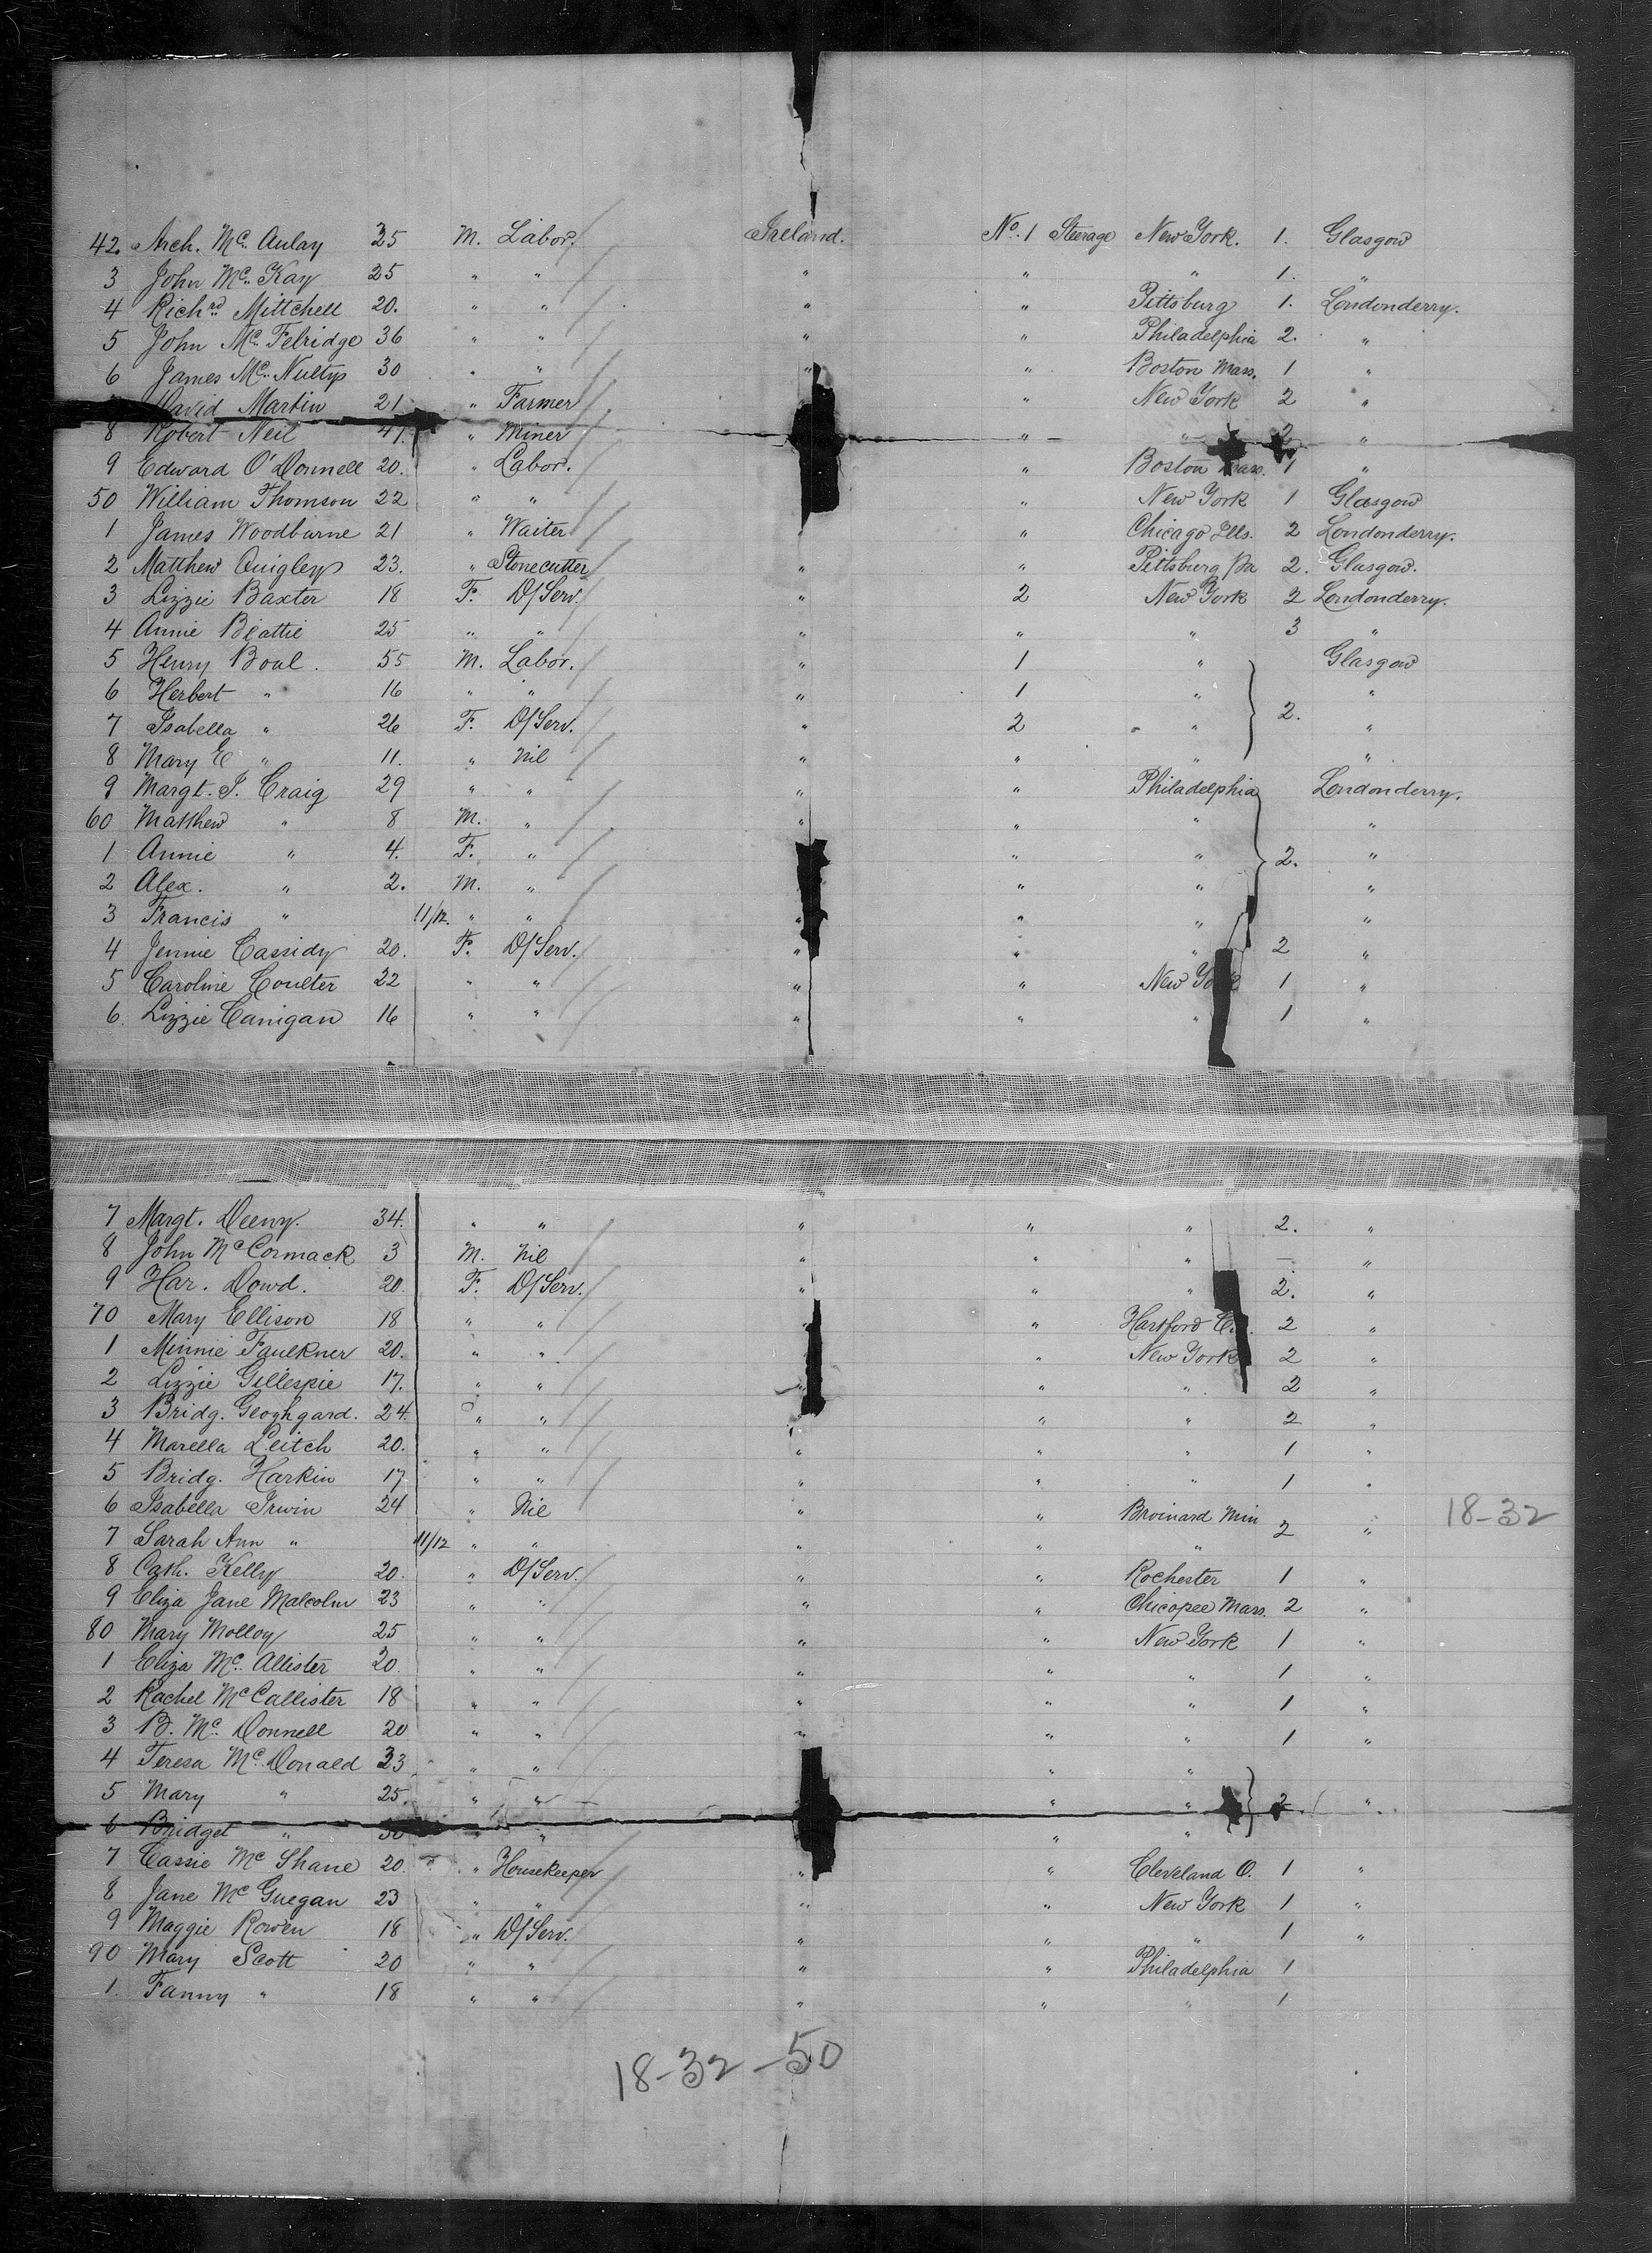 42. Arch. Mc. Aulay 25 M. Labor. Ireland. No. 1 Steerage New York. 1. Glasgow
3 John Mc. Kay 25 " " " " " 1. "
4 Richrd. Mittchell 20. " " " " Pittsburg 1. Londonderry.
5 John Mc. Felridge 36 " " " " Philadelphia 2. "
6 James Mc. Nulty 30 " " " " Boston Mass. 1 "
David Martin 21 " Farmer " New York 2 "
8 Robert Neil " Miner " " 2 "
9 Edward O'Donnell 20. " Labor. " Boston Mass. 1 "
50 William Thomson 22 " " " New York 1 Glasgow
1 James Woodburne 21 " Waiter " " Chicago Ills. 2 Londonderry.
2 Matthew Quigley 23. " Stonecutter " " Pittsburg Pa 2. Glasgow.
3 Lizzie Baxter 18 F. D/Serv. " 2 New York 2 Londonderry.
4 Annie Beattie 25 " " " " " 3 "
5 Henry Boal. 55 M. Labor. " 1 " Glasgow
6 Herbert " 16 " " " 1 " "
7 Isabella " 26 F. D/Serv. " 2 " 2. "
8 Mary E " 11. " Nil " " " "
9 Margt. J. Craig 29 " " " " Philadelphia Londonderry.
60 Matthew " 8 M. " " " " "
1 Annie " 4. F. " " " 2. "
2 Alex. " 2. M. " " " "
3 Francis " 11/12. " " " " " "
4 Jennie Cassidy 20. F. D/Serv. " " " 2 "
5 Caroline Coulter 22 " " " " New York 1 "
6. Lizzie Canigan 16 " " " " " 1 "
7 Margt. Deeny. 34. " " " " " 2. "
8 John McCormack 3 M. Nil " " " — "
9 Har. Dowd. 20. F. D/Serv. " " " 2. "
70 Mary Ellison 18 " " " Hartford 2 "
1 Minnie Faulkner 20. " " " New York 2 "
2 Lizzie Gillespie 17. " " " " " 2 "
3 Bridg. Geoghgard. 24. " " " " 2 "
4 Marella Leitch 20. " " " " " 1 "
5 Bridg. Harkin 17 " " " " " 1 "
6 Isabella Irwin 24 " Nil " " Broinard Min 2 " 18-32
7 Sarah Ann " 11/12 " " " " "
8 Cath. Kelly 20. " D/Serv. " " Rochester 1 "
9 Eliza Jane Malcolm 23 " " " " Chicopee Mass. 2 "
80 Mary Molloy 25 " " " " New York 1 "
1 Eliza Mc. Allister 20. " " " " " 1 "
2 Rachel McCallister 18 " " " " " 1 "
3 B. Mc. Donnell 20 " " " " " 1 "
4 Teresa Mc. Donald 23 " " " "
5 Mary " 25. " " " " 2. "
6 Bridget " " " " "
7 Cassie Mc Shane 20. " Housekeeper " " Cleveland O. 1 "
8 Jane Mc Guegan 23 " " " " New York 1 "
9 Maggie Rowen 18 " D/Serv. " " " 1 "
90 Mary Scott 20 " " " " Philadelphia 1
1. Fanny " 18 " " " " " 1
18-32-50